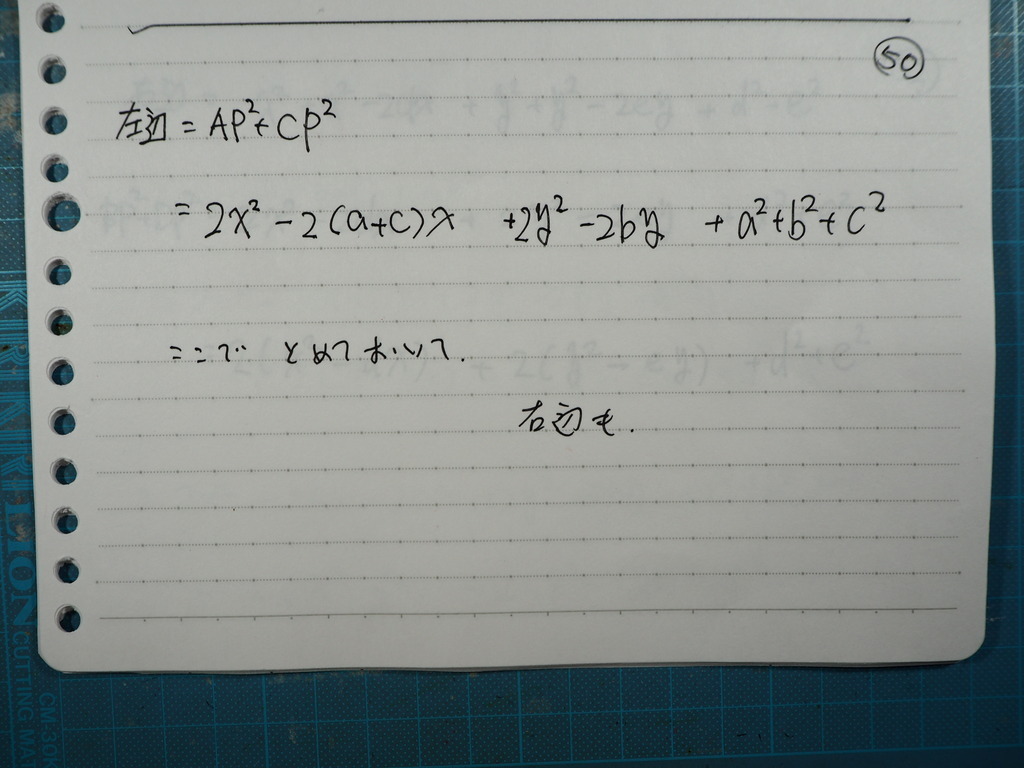 50
左辺 = AP²+CP²
= 2x² - 2(a+c)x +2y² -2by + a²+b²+c²
ここで とめておいて.
右辺も.
LION
CUTTING MA
CM-30